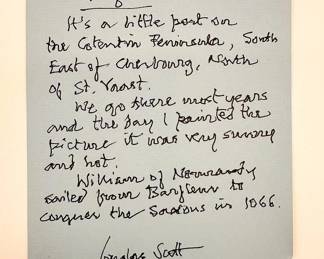 It's a little port on
the Cotentin Peninsula, South
East of Cherbourg, North
of St. Vaast.
We go there most years
and the day I painted the
picture it was very sunny
and hot.
William of Normandy
sailed from Barfleur to
conquer the Saxons in 1066.
Scott